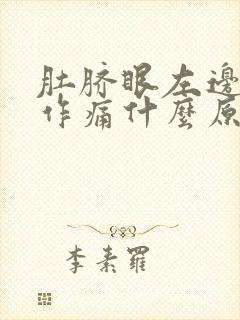 肚脐眼左邊
作痛什麼原
李素羅